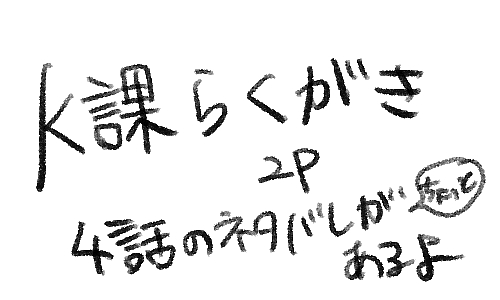 K課らくがき
2P
4話のネタバレが
ちょっと
あるよ